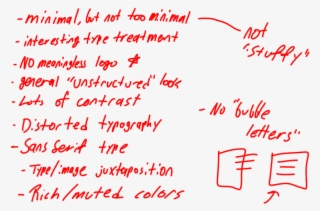 - minimal, but not too minimal
- interesting type treatment
- NO meaningless logo
- general "unstructured" look
- Lots of contrast
- Distorted typography
- Sans Serif type
- Type/image juxtaposition
- Rich/muted colors
not
"stuffy"
- No "bubble
letters"